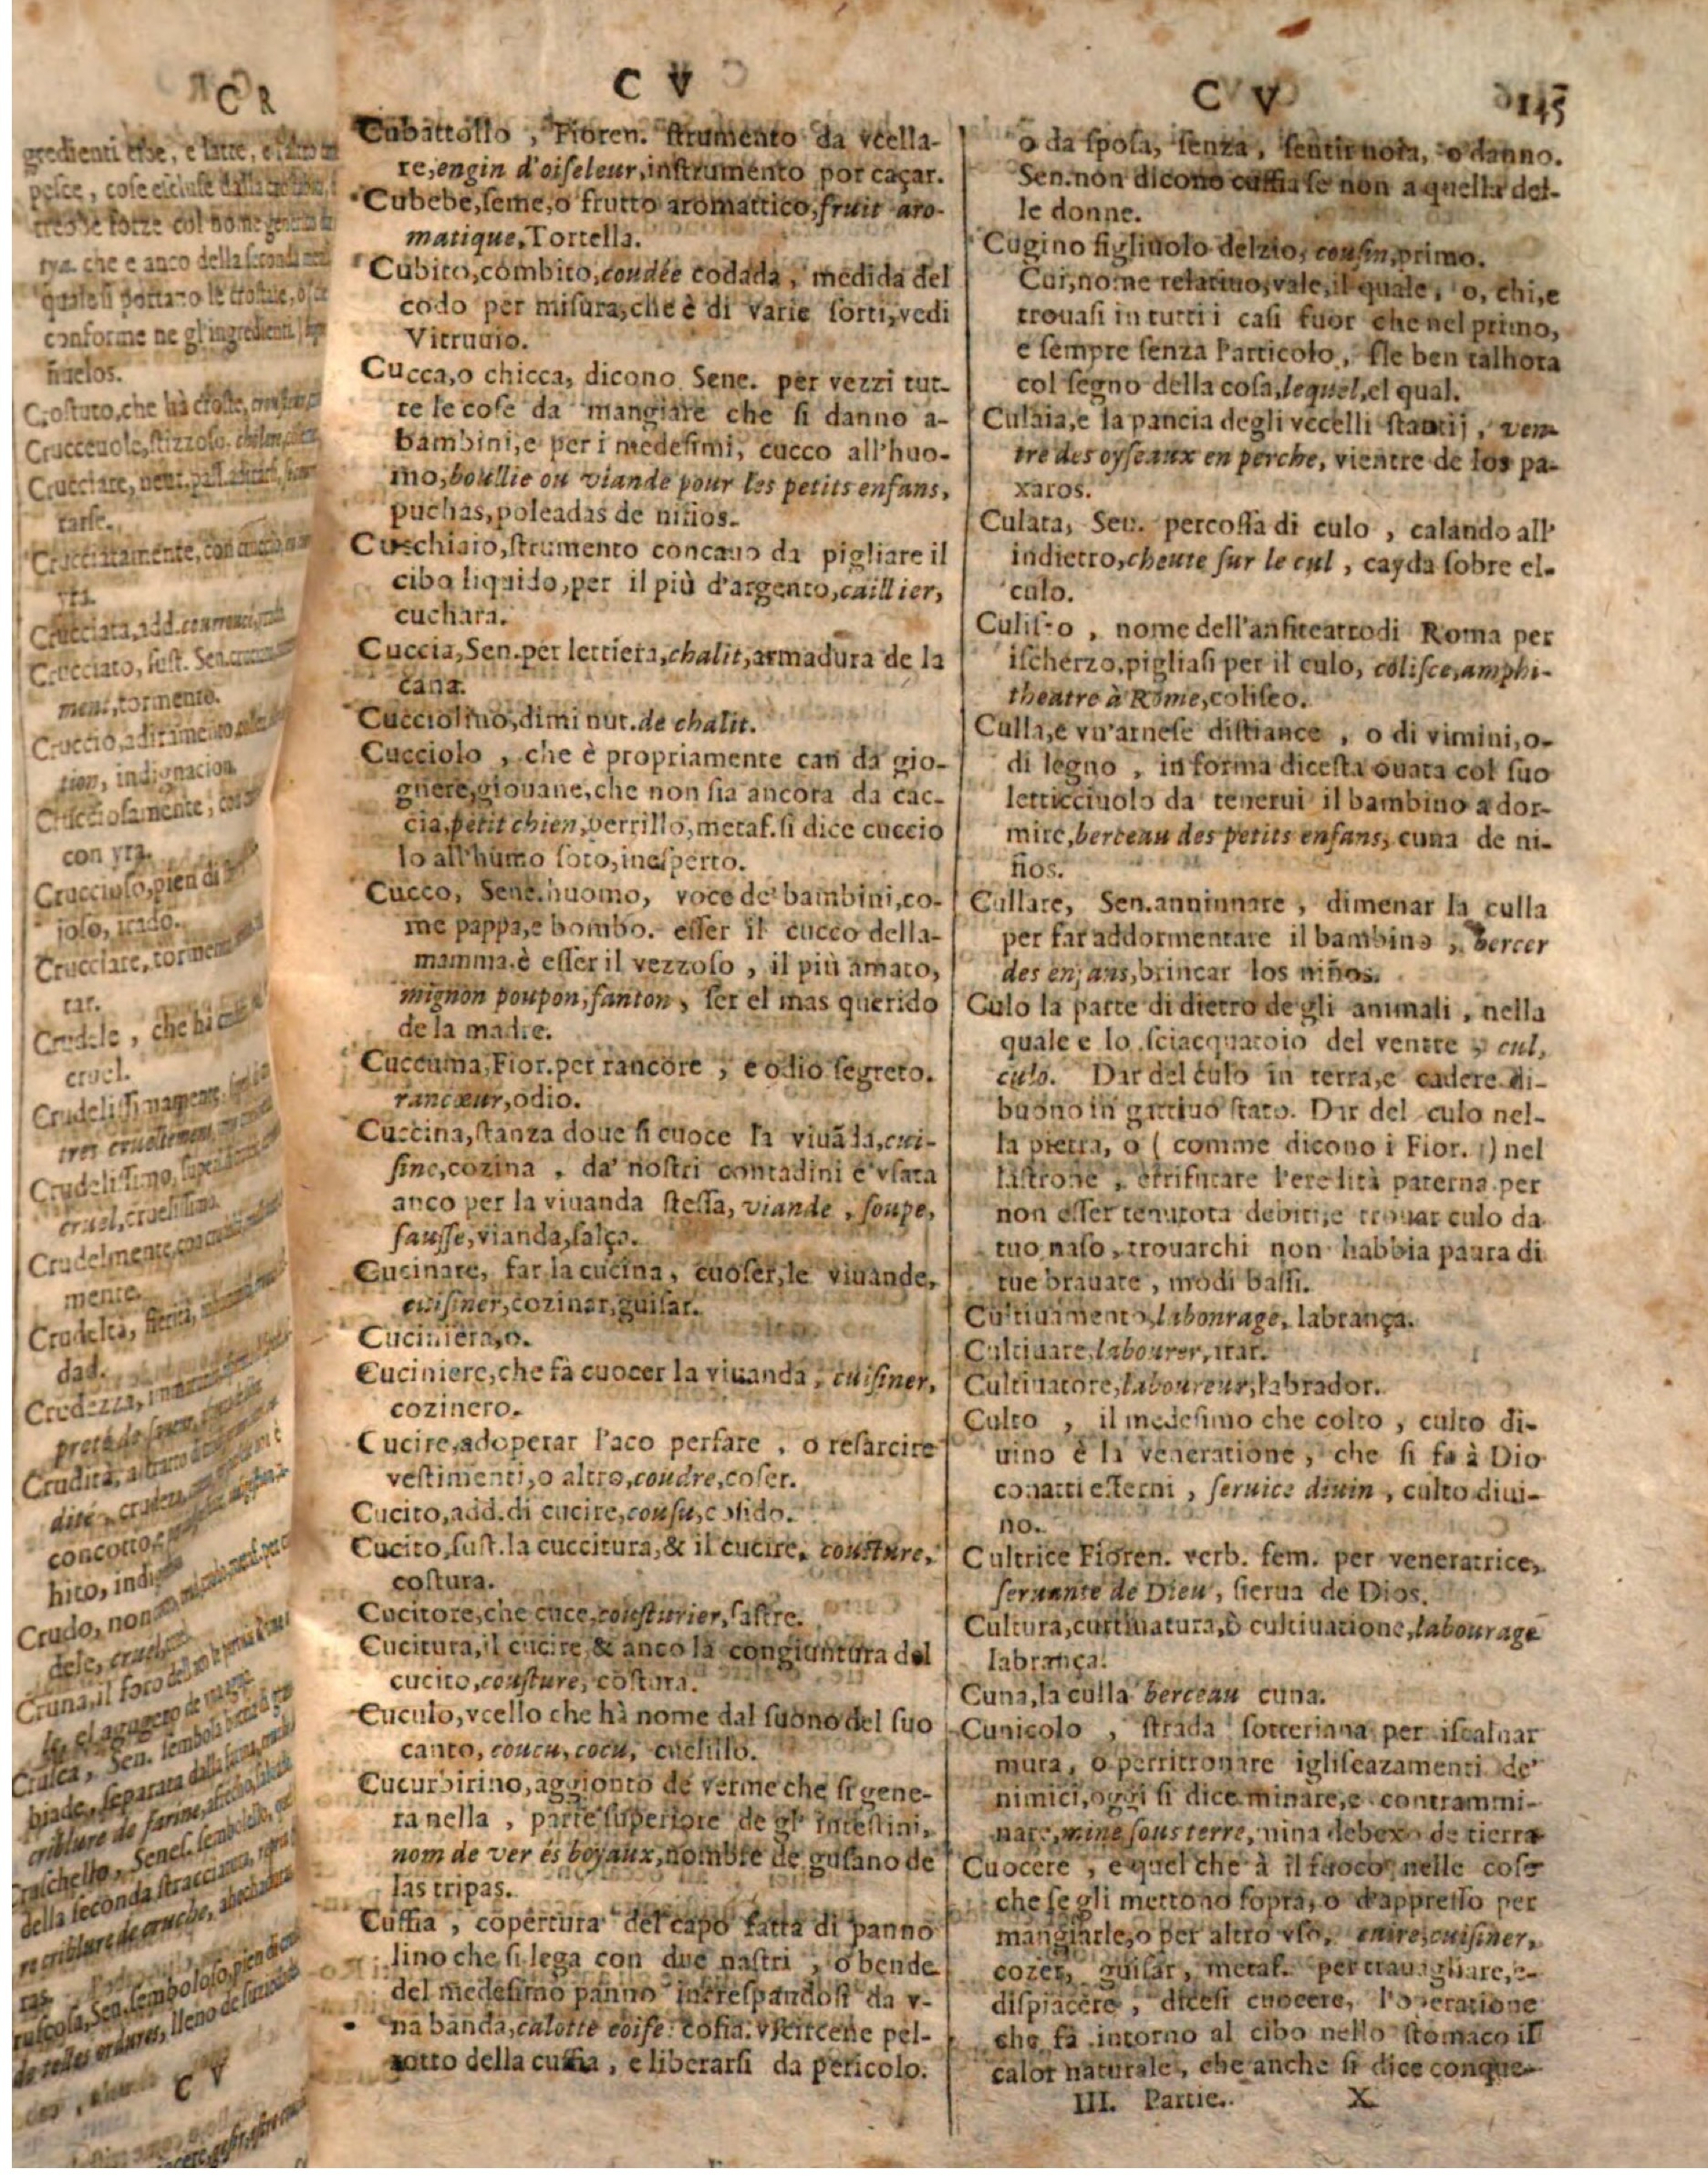 C R
gredienti
conforme ne gl'ingredienti
ñuelos.
Crostuto, che hà croste,
Crucceuole, stizzoso.
Crucciare, neut. pass.
tarse.
Crucciatamente, con
yra.
Crucciata, add.
Crucciato, sust. Sen.
ment, tormento.
Cruccio, adiramento
tion, indignacion
Crucciosamente, con
con yra.
Cruccioso, pien di
joso, irado.
Crucciare,
tar.
Crudele, che hà
cruel.
Crudelissimamente,
Crudelissimo,
cruel, cruelissimo.
Crudelmente,
mente.
Crudeltà, fierità,
dad.
Crudezza,
Crudità,
concotto,
Crudo, non
dele, cruel,
Cruna, il foro
Crusca, Sen. sembola
biade, separata dalla farina,
criblure de farine,
della seconda stacciatura,
C V
C V
Cubattollo, Fioren. strumento da vcella-
re, engin d'oiseleur, instrumento por caçar.
Cubebe, seme, o frutto aromattico, fruit aro-
matique, Tortella.
Cubito, combito, coudée codada, medida del
codo per misura, che è di varie sorti, vedi
Vitruuio.
Cucca, o chicca, dicono Sene. per vezzi tut-
te le cose da mangiare che si danno a-
bambini, e per i medesimi, cucco all'huo-
mo, boullie ou viande pour les petits enfans,
puchas, poleadas de niños.
Cucchiaio, strumento concauo da pigliare il
cibo liquido, per il più d'argento, caillier,
cuchara.
Cuccia, Sen. per lettiera, chalit, armadura de la
cana.
Cucciolino, diminut. de chalit.
Cucciolo, che è propriamente can da gio-
gnere, giouane, che non sia ancora da cac-
cia, petit chien, perrillo, metaf. si dice cuccio
lo all'humo soro, inesperto.
Cucco, Sene. huomo, voce de' bambini, co-
me pappa, e bombo. esser il cucco della-
mamma. è esser il vezzoso, il più amato,
mignon poupon, fanton, ser el mas querido
de la madre.
Cuccuma, Fior. per rancore, e odio segreto.
rancœur, odio.
Cuccina, stanza doue si cuoce la viuãda, cui-
sine, cozina, da' nostri contadini e vsata
anco per la viuanda stessa, viande, soupe,
sausse, vianda, salça.
Cucinare, far la cucina, cuoser, le viuande,
cuisiner, cozinar, guisar.
Cuciniera, o.
Cuciniere, che fà cuocer la viuanda, cuisiner,
cozinero.
Cucire, adoperar l'aco perfare, o resarcire
vestimenti, o altro, coudre, coser.
Cucito, add. di cucire, cousu, cosido.
Cucito, sust. la cuccitura, & il cucire, cousture,
costura.
Cucitore, che cuce, cousturier, sastre.
Cucitura, il cucire, & anco la congiuntura del
cucito, cousture, costura.
Cuculo, vcello che hà nome dal suono del suo
canto, coucu, cocu, cuclillo.
Cucurbirino, aggionto de verme che si gene-
ra nella, parte superiore de gl' intestini,
nom de ver és boyaux, nombre de gusano de
las tripas.
Cuffia, copertura del capo fatta di panno
lino che si lega con due nastri, o bende
del medesimo panno increspandosi da v-
na banda, calotte coife. cofia. vscircene pel-
rotto della cuffia, e liberarsi da pericolo.
C V 145
o da sposa, senza, sentir noia, o danno.
Sen. non dicono cuffia se non a quella del-
le donne.
Cugino figliuolo delzio, cousin, primo.
Cui, nome relatiuo, vale, il quale, o, chi, e
trouasi in tutti i casi fuor che nel primo,
e sempre senza l'articolo, sse ben talhora
col segno della cosa, lequel, el qual.
Culaia, e la pancia degli vccelli stantij, ven-
tre des oyseaux en perche, vientre de los pa-
xaros.
Culata, Sen. percossa di culo, calando all'
indietro, cheute sur le cul, cayda sobre el-
culo.
Culiseo, nome dell'anfiteatrodi Roma per
ischerzo, pigliasi per il culo, colisce, amphi-
theatre à Rome, coliseo.
Culla, e vn'arnese distiance, o di vimini, o-
di legno, in forma dicesta ouata col suo
letticciuolo da tenerui il bambino a dor-
mire, berceau des petits enfans, cuna de ni-
ños.
Cullare, Sen. anninnare, dimenar la culla
per far addormentare il bambino, bercer
des enfans, brincar los niños.
Culo la parte di dietro de gli animali, nella
quale e lo sciacquatoio del ventre, cul,
culo. Dar del culo in terra, e cadere di-
buono in gattiuo stato. Dar del culo nel-
la pietra, o ( comme dicono i Fior. ) nel
lastrone, e rifiutare l'eredità paterna per
non esser tenutota debiti, e trouar culo da
tuo naso, trouarchi non habbia paura di
tue brauate, modi bassi.
Cultiuamento, labourage, labrança.
Cultiuare, labourer, arar.
Cultiuatore, laboureur, labrador.
Culto, il medesimo che colto, culto di-
uino è la veneratione, che si fa à Dio
conatti esterni, seruice diuin, culto diui-
no.
Cultrice Fioren. verb. fem. per veneratrice,
seruante de Dieu, sierua de Dios.
Cultura, curtiuatura, ò cultiuatione, labourage
labrança.
Cuna, la culla berceau cuna.
Cunicolo, strada sotteriana per iscalnar
mura, o perritrouare igliseazamenti de'
nimici, oggi si dice minare, e contrammi-
nare, mine sous terre, mina debexo de tierra
Cuocere, e quel che à il fuoco, nelle cose
che se gli mettono sopra, o d'appresso per
mangiarle, o per altro vso, cuire, cuisiner,
cozer, guisar, metaf. per trauagliare, e-
dispiacere, dicesi cuocere, l'operatione
che fà intorno al cibo nello stomaco il
calor naturale, che anche si dice conque-
III. Partie. X